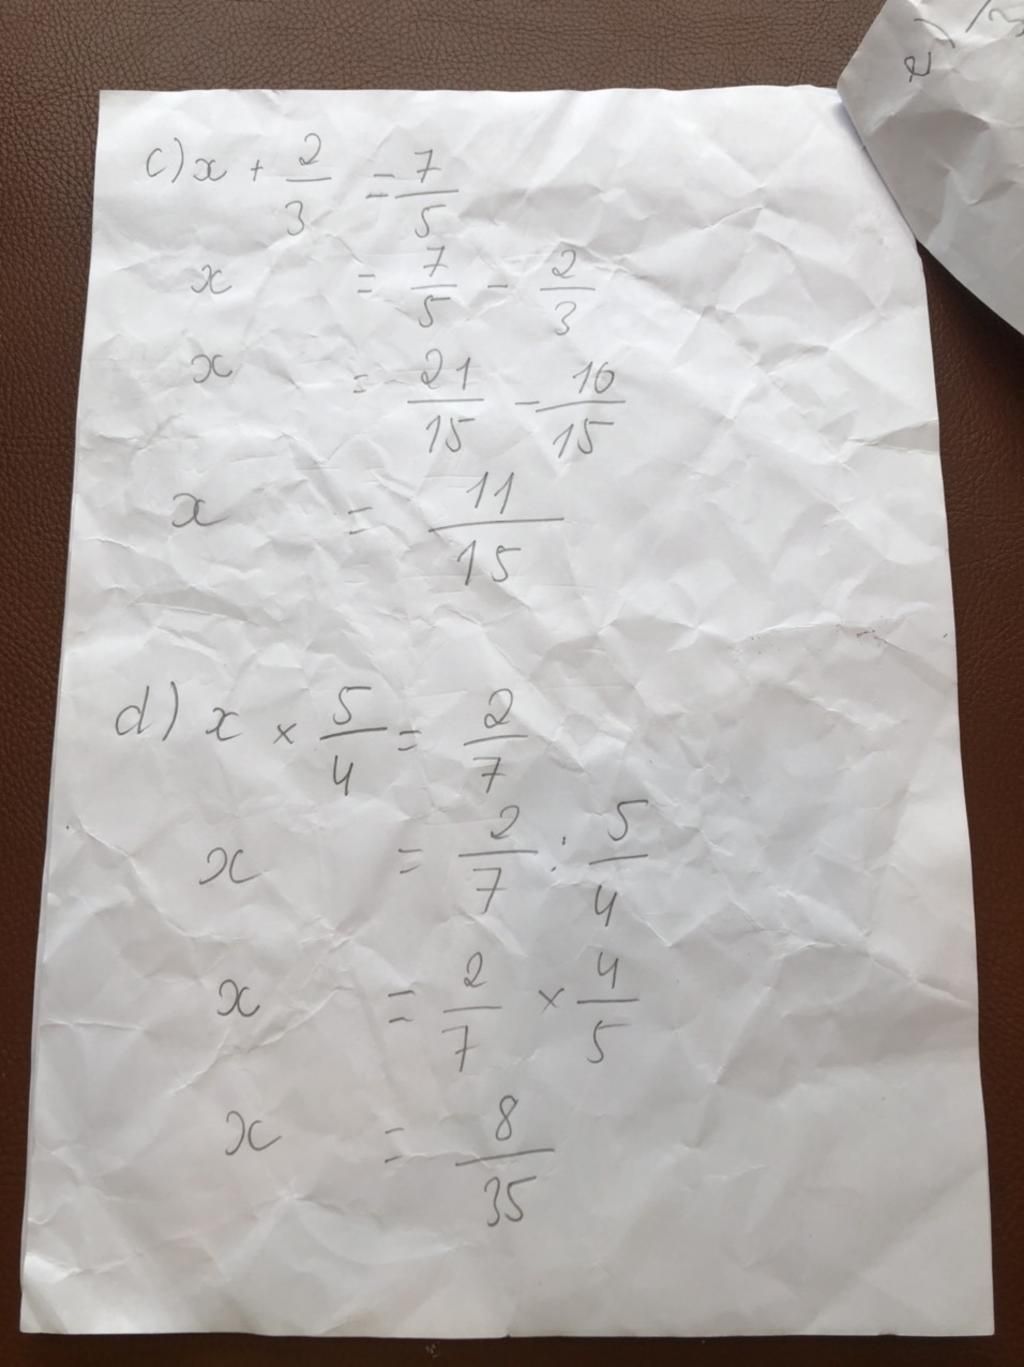 c) x + 2/3 = 7/5
x = 7/5 - 2/3
x = 21/15 - 10/15
x = 11/15
d) x × 5/4 = 2/7
x = 2/7 : 5/4
x = 2/7 × 4/5
x = 8/35